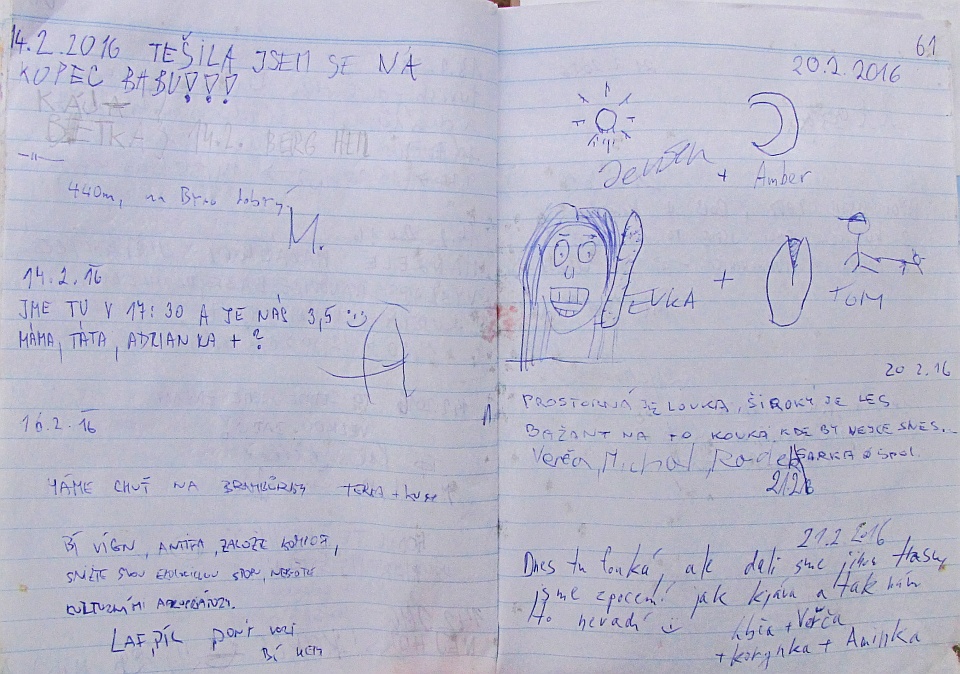 14.2.2016 TĚŠILA JSEM SE NA
KOPEC BABU!!!
KÁJA
BETKA, 14.2. BERGHEM
—"—
440m, na Brno dobrý.
M.
14.2.16
JME TU V 17:30 A JE NÁS 3,5
MÁMA, TÁTA, ADRIANKA + ?
16.2.16
MÁME CHUŤ NA BRAMBŮRKY TERKA +
BÍ VÍGN, ANTIFA, ZALOŽE
SNIŽTE SVOU STOPU,
KULTURNÍMI
LAF, PÍC DONT
BÍ
61
20.2.2016
+ Amber
EVKA + TOM
20.2.16
PROSTORNÁ JE LOUKA, ŠIROKÝ JE LES
BAŽANT NA TO KOUKÁ, KDE BY VEJCE SNES...
Verča, Michal, Radek ŠÁRKA & SPOL.
21.2.
21.2.2016
Dnes tu fouká, ale dali sme jinu trasu,
jsme zpocení jak kráva a tak nám
to nevadí
+ Verča
+ Korynka + Aminka